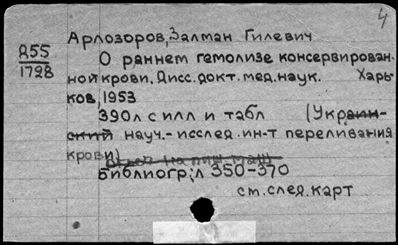 4
Арлозоров, Залман Гилевич
Д55
1728
О раннем гемолизе консервирован-
ной крови, Дисс. докт. мед. наук. Харь-
ков, 1953
390л с илл и табл (Украин-
ский науч.-исслед. ин-т переливания
крови)
Библиогр; л 350-370
ст. след. карт